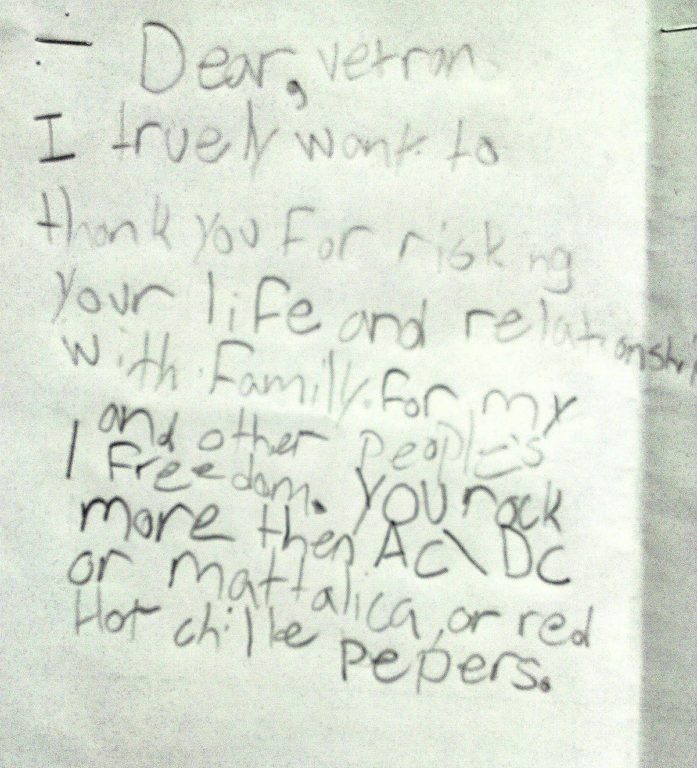 Dear, vetran
I truely want to
thank you for risking
your life and relationshi
with family. for my
and other people's
freedom. you rock
more then AC\DC
or mattalica, or red
Hot chille pepers.